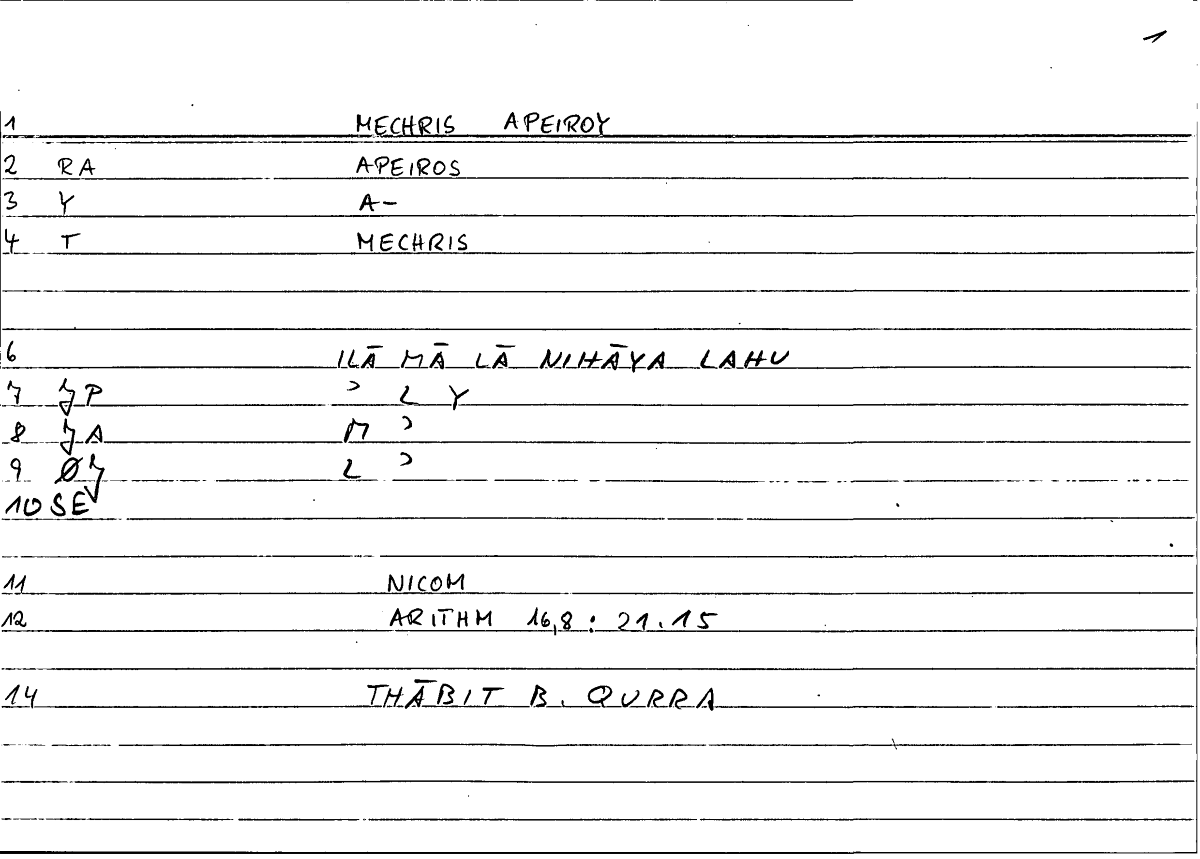 1
1 MECHRIS APEIROY
2 RA APEIROS
3 Y A-
4 T MECHRIS
6 ILĀ MĀ LĀ NIHĀYA LAHU
7 P ʾ L Y
8 A M ʾ
9 Ø L ʾ
10 SE
11 NICOM
12 ARITHM 16,8 : 21.15
14 THĀBIT B. QURRA